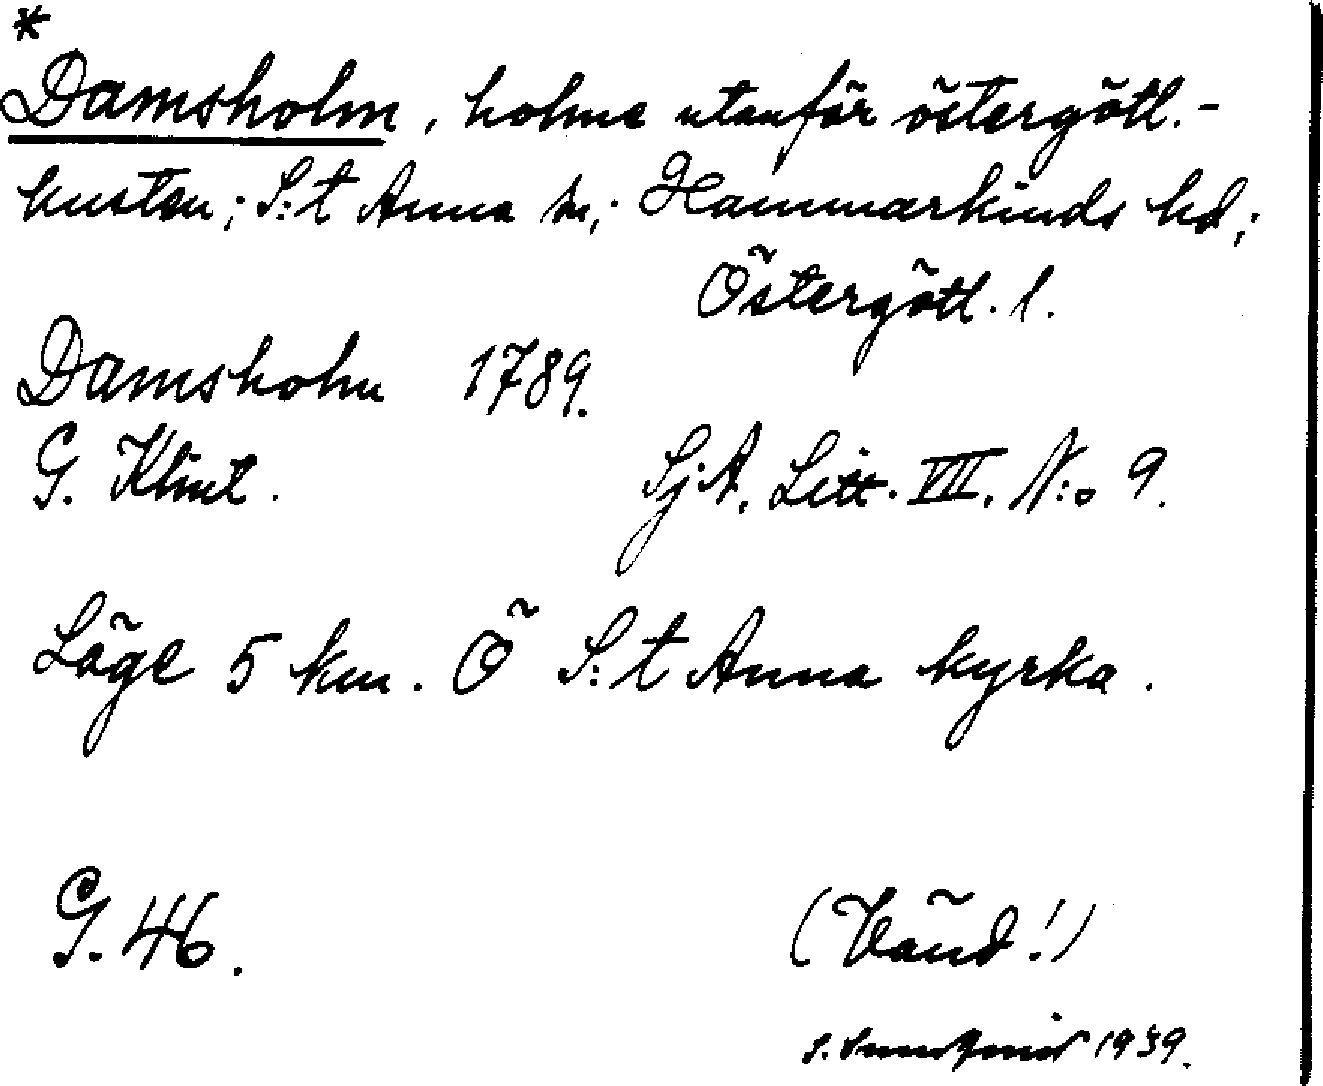 *
Damsholm, holme utanför östergötl.-
kusten; S:t Anna sn; Hammarkinds hd;
Östergötl. l.
Damsholm 1789.
G. Klint. Sj.A. Litt. VII. N:o 9.
Läge 5 km. Ö S:t Anna kyrka.
G. 46. (Vänd!)
S. 1939.